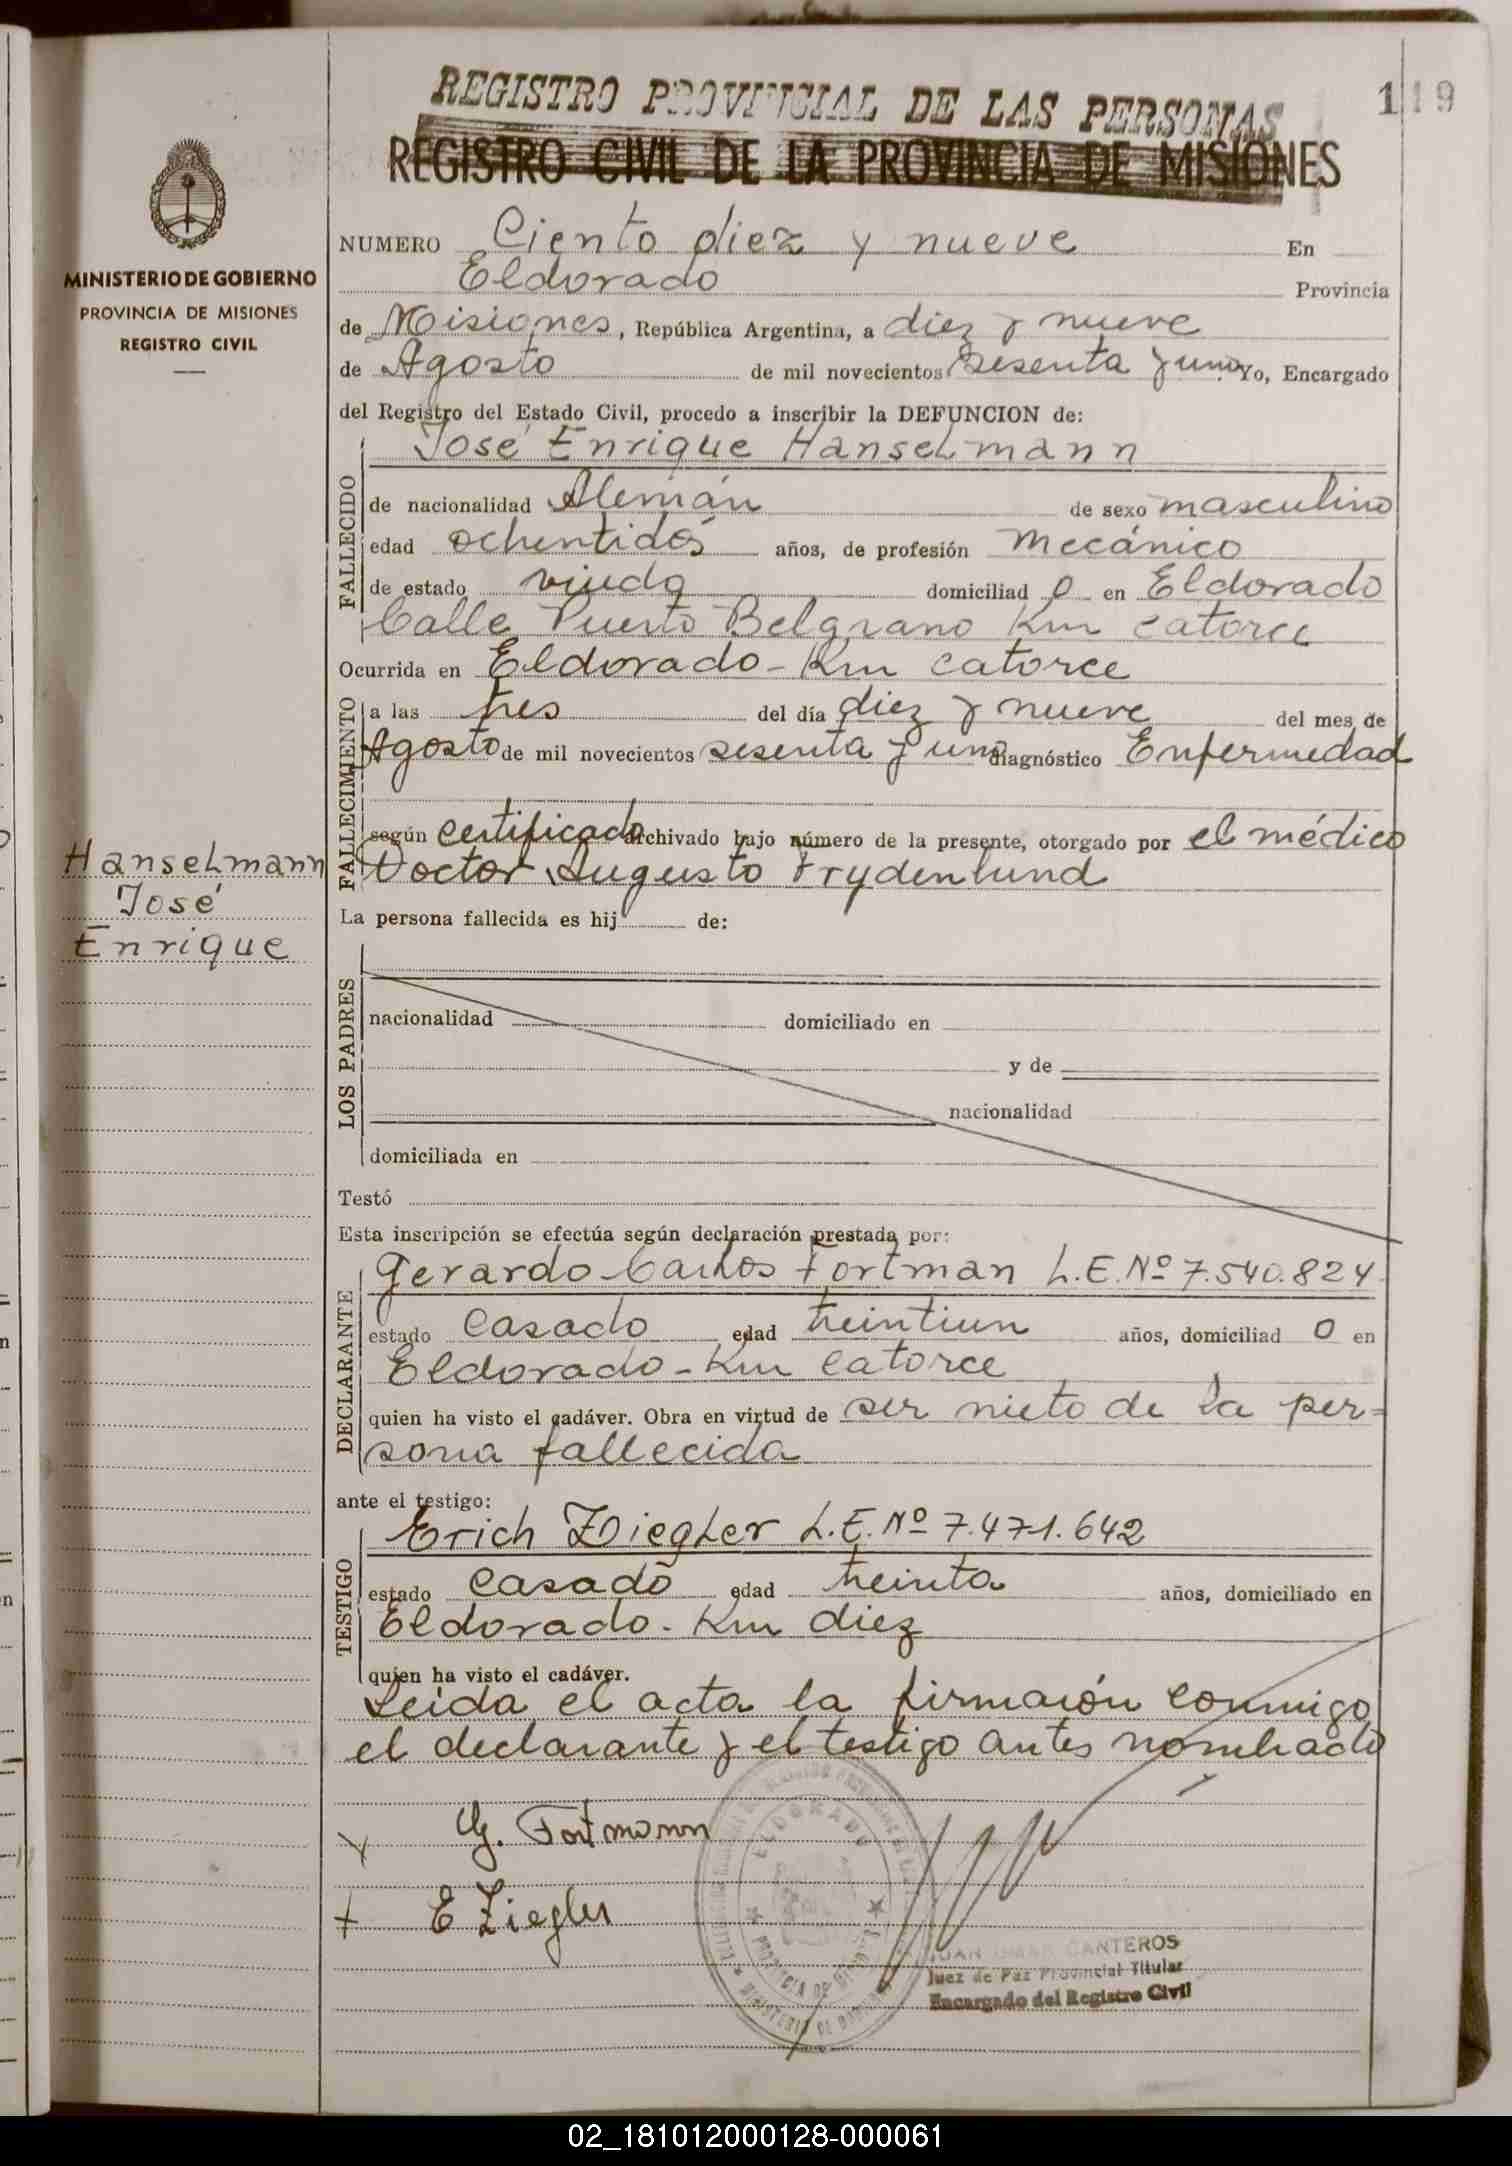 REGISTRO PROVINCIAL DE LAS PERSONAS
119
REGISTRO CIVIL DE LA PROVINCIA DE MISIONES
MINISTERIO DE GOBIERNO
PROVINCIA DE MISIONES
REGISTRO CIVIL
NUMERO Ciento diez y nueve En
Eldorado Provincia
de Misiones, República Argentina, a diez y nueve
de Agosto de mil novecientos sesenta y uno Yo, Encargado
del Registro del Estado Civil, procedo a inscribir la DEFUNCION de:
José Enrique Hanselmann
FALLECIDO
de nacionalidad Alemán de sexo masculino
edad ochentidós años, de profesión Mecánico
de estado viudo domiciliad o en Eldorado
Calle Puerto Belgrano Km catorce
Ocurrida en Eldorado - Km catorce
FALLECIMIENTO
a las tres del día diez y nueve del mes de
Agosto de mil novecientos sesenta y uno diagnóstico Enfermedad
según certificado archivado bajo número de la presente, otorgado por el médico
Doctor Augusto Frydenlund
Hanselmann
José
Enrique
La persona fallecida es hij de:
LOS PADRES
nacionalidad domiciliado en
y de
nacionalidad
domiciliada en
Testó
Esta inscripción se efectúa según declaración prestada por:
Gerardo Carlos Fortman L.E. Nº 7.540.824
DECLARANTE
estado Casado edad treintiun años, domiciliad o en
Eldorado - Km catorce
quien ha visto el cadáver. Obra en virtud de ser nieto de la per=
sona fallecida
ante el testigo:
Erich Ziegler L.E. Nº 7.471.642
TESTIGO
estado Casado edad treinta años, domiciliado en
Eldorado. Km diez
quien ha visto el cadáver.
Leida el acta la firmaron conmigo
el declarante y el testigo antes nombrado
G. Fortmann
E Ziegler
ELDORADO
JUAN OMAR CANTEROS
Juez de Paz Provincial Titular
Encargado del Registro Civil
02_181012000128-000061